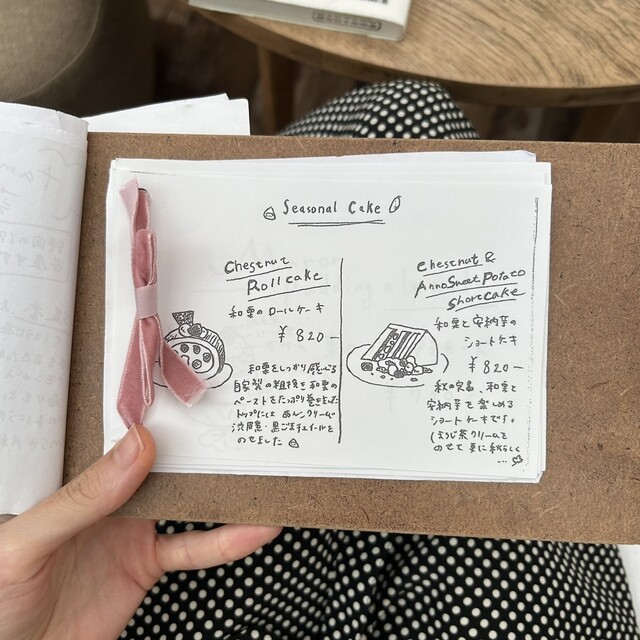 Seasonal Cake
Chestnut
Roll cake
和栗のロールケーキ
¥820-
和栗をしっかり感じる
自家製の粗挽き和栗の
ペーストをたっぷり巻きました
トップには あんクリーム
渋皮煮・黒ごまチュイールを
のせました
Chestnut &
Anno Sweet Potato
Shortcake
和栗と安納芋の
ショートケーキ
¥820-
秋の定番、和栗と
安納芋で楽しめる
ショートケーキです。
ほうじ茶クリームを
のせて 更に秋らしく
...